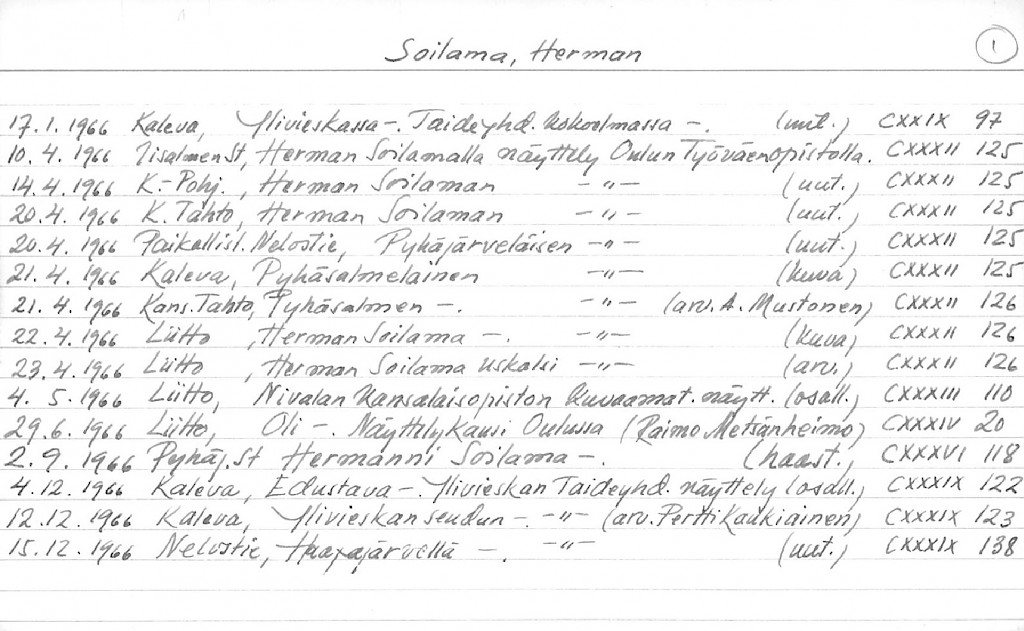 Soilama, Herman
1
17.1.1966 Kaleva, Ylivieskassa -. Taideyhd. kokoelmassa -. (uut.) CXXIX 97
10.4.1966 Iisalmen St, Herman Soilamalla näyttely Oulun Työväenopistolla. CXXXII 125
14.4.1966 K.-Pohj., Herman Soilaman -"- (uut.) CXXXII 125
20.4.1966 K. Tahto, Herman Soilaman -"- (uut.) CXXXII 125
20.4.1966 Paikallisl. Nelostie, Pyhäjärveläisen -"- (uut.) CXXXII 125
21.4.1966 Kaleva, Pyhäsalmelainen -"- (kuva) CXXXII 125
21.4.1966 Kans. Tahto, Pyhäsalmen -. -"- (arv. A. Mustonen) CXXXII 126
22.4.1966 Liitto, Herman Soilama -. -"- (kuva) CXXXII 126
23.4.1966 Liitto, Herman Soilama uskalsi -"- (arv.) CXXXII 126
4.5.1966 Liitto, Nivalan Kansalaisopiston kuvaamat. näytt. (osall.) CXXXIII 110
29.6.1966 Liitto, Oli -. Näyttelykausi Oulussa (Raimo Metsänheimo) CXXXIV 20
2.9.1966 Pyhäj. St Hermanni Soilama -. (haast.) CXXXVI 118
4.12.1966 Kaleva, Edustava -. Ylivieskan Taideyhd. näyttely (osall.) CXXXIX 122
12.12.1966 Kaleva, Ylivieskan seudun -. -"- (arv. Pertti Kaukiainen) CXXXIX 123
15.12.1966 Nelostie, Haapajärvellä -. -"- (uut.) CXXXIX 138